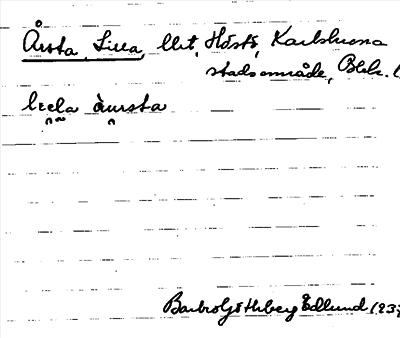 Årsta, Lilla, llit, Hästö, Karlskrona
stadsområde, Blek. l
lıcla àursta
Barbro Götlberg Edlund 193